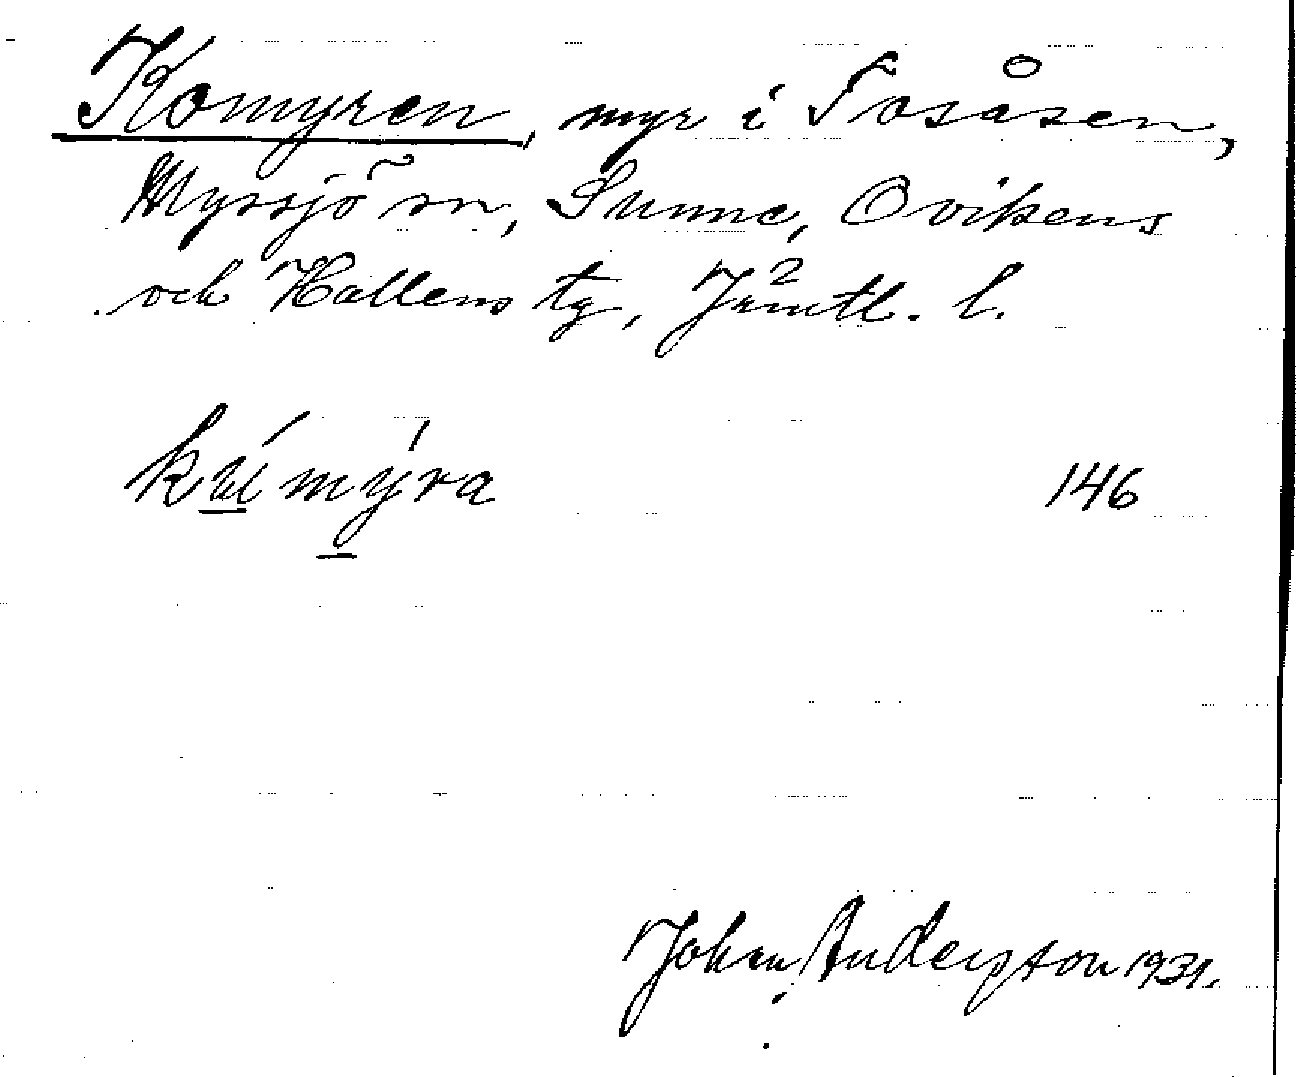 Komyren, myr i Fosåsen,
Myssjö sn, Sunne, Ovikens
och Hallens tg, Jämtl. l.
kúmýra 146
Johan Andersson 1931.